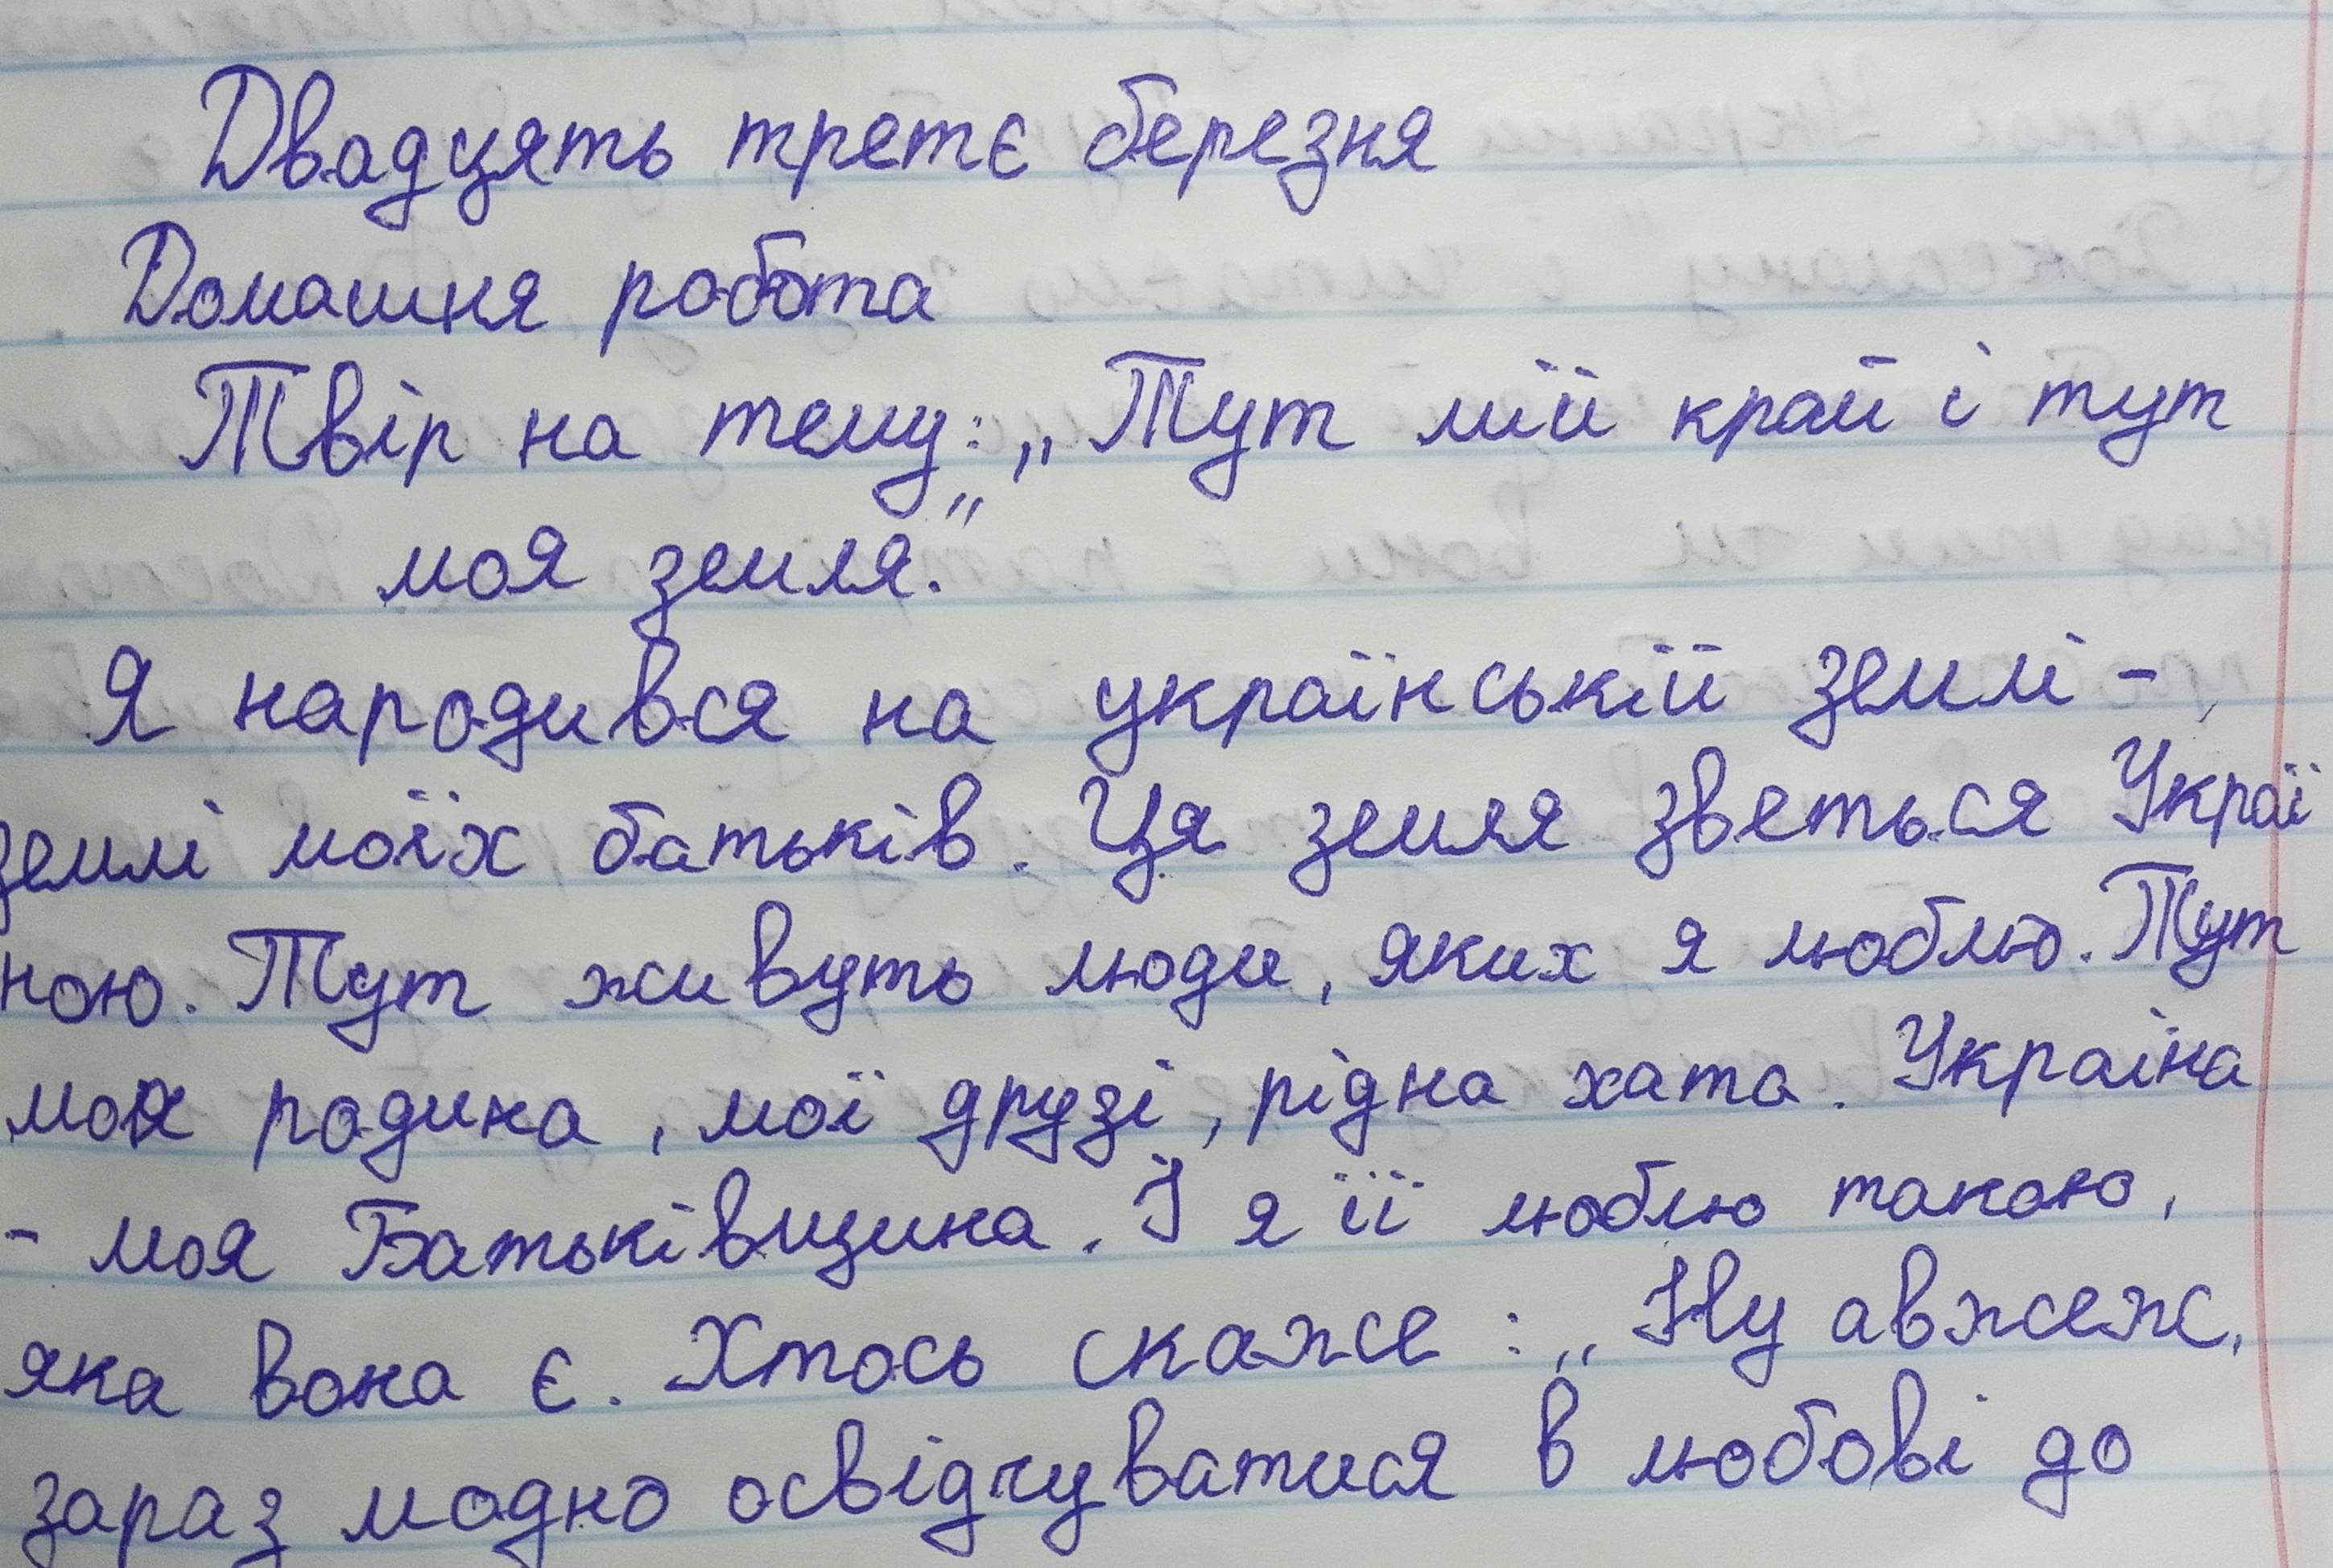 Двадцять третє березня
Домашня робота
Твір на тему: „Тут мій край і тут
моя земля.”
Я народився на українській землі -
землі моїх батьків. Ця земля зветься Украї
ною. Тут живуть люди, яких я люблю. Тут
моя родина, мої друзі, рідна хата. Україна
- моя Батьківщина. І я її люблю такою,
яка вона є. Хтось скаже: „Ну авжеж,
зараз модно освідчуватися в любові до